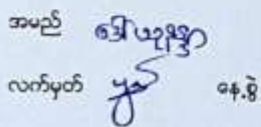 အမည် ဒေါ်ယုနန္ဒာ
လက်မှတ် နေ့စွဲ